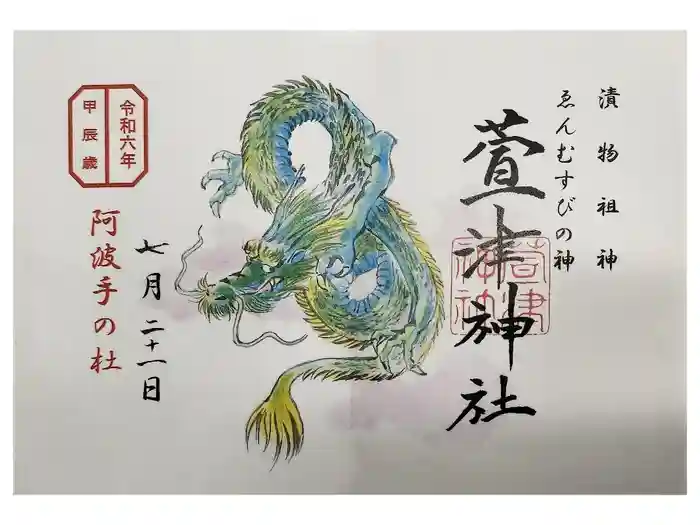 漬物祖神
ゑんむすびの神
萱津神社
萱津
神社
令和六年
甲辰歳
七月二十一日
阿波手の杜